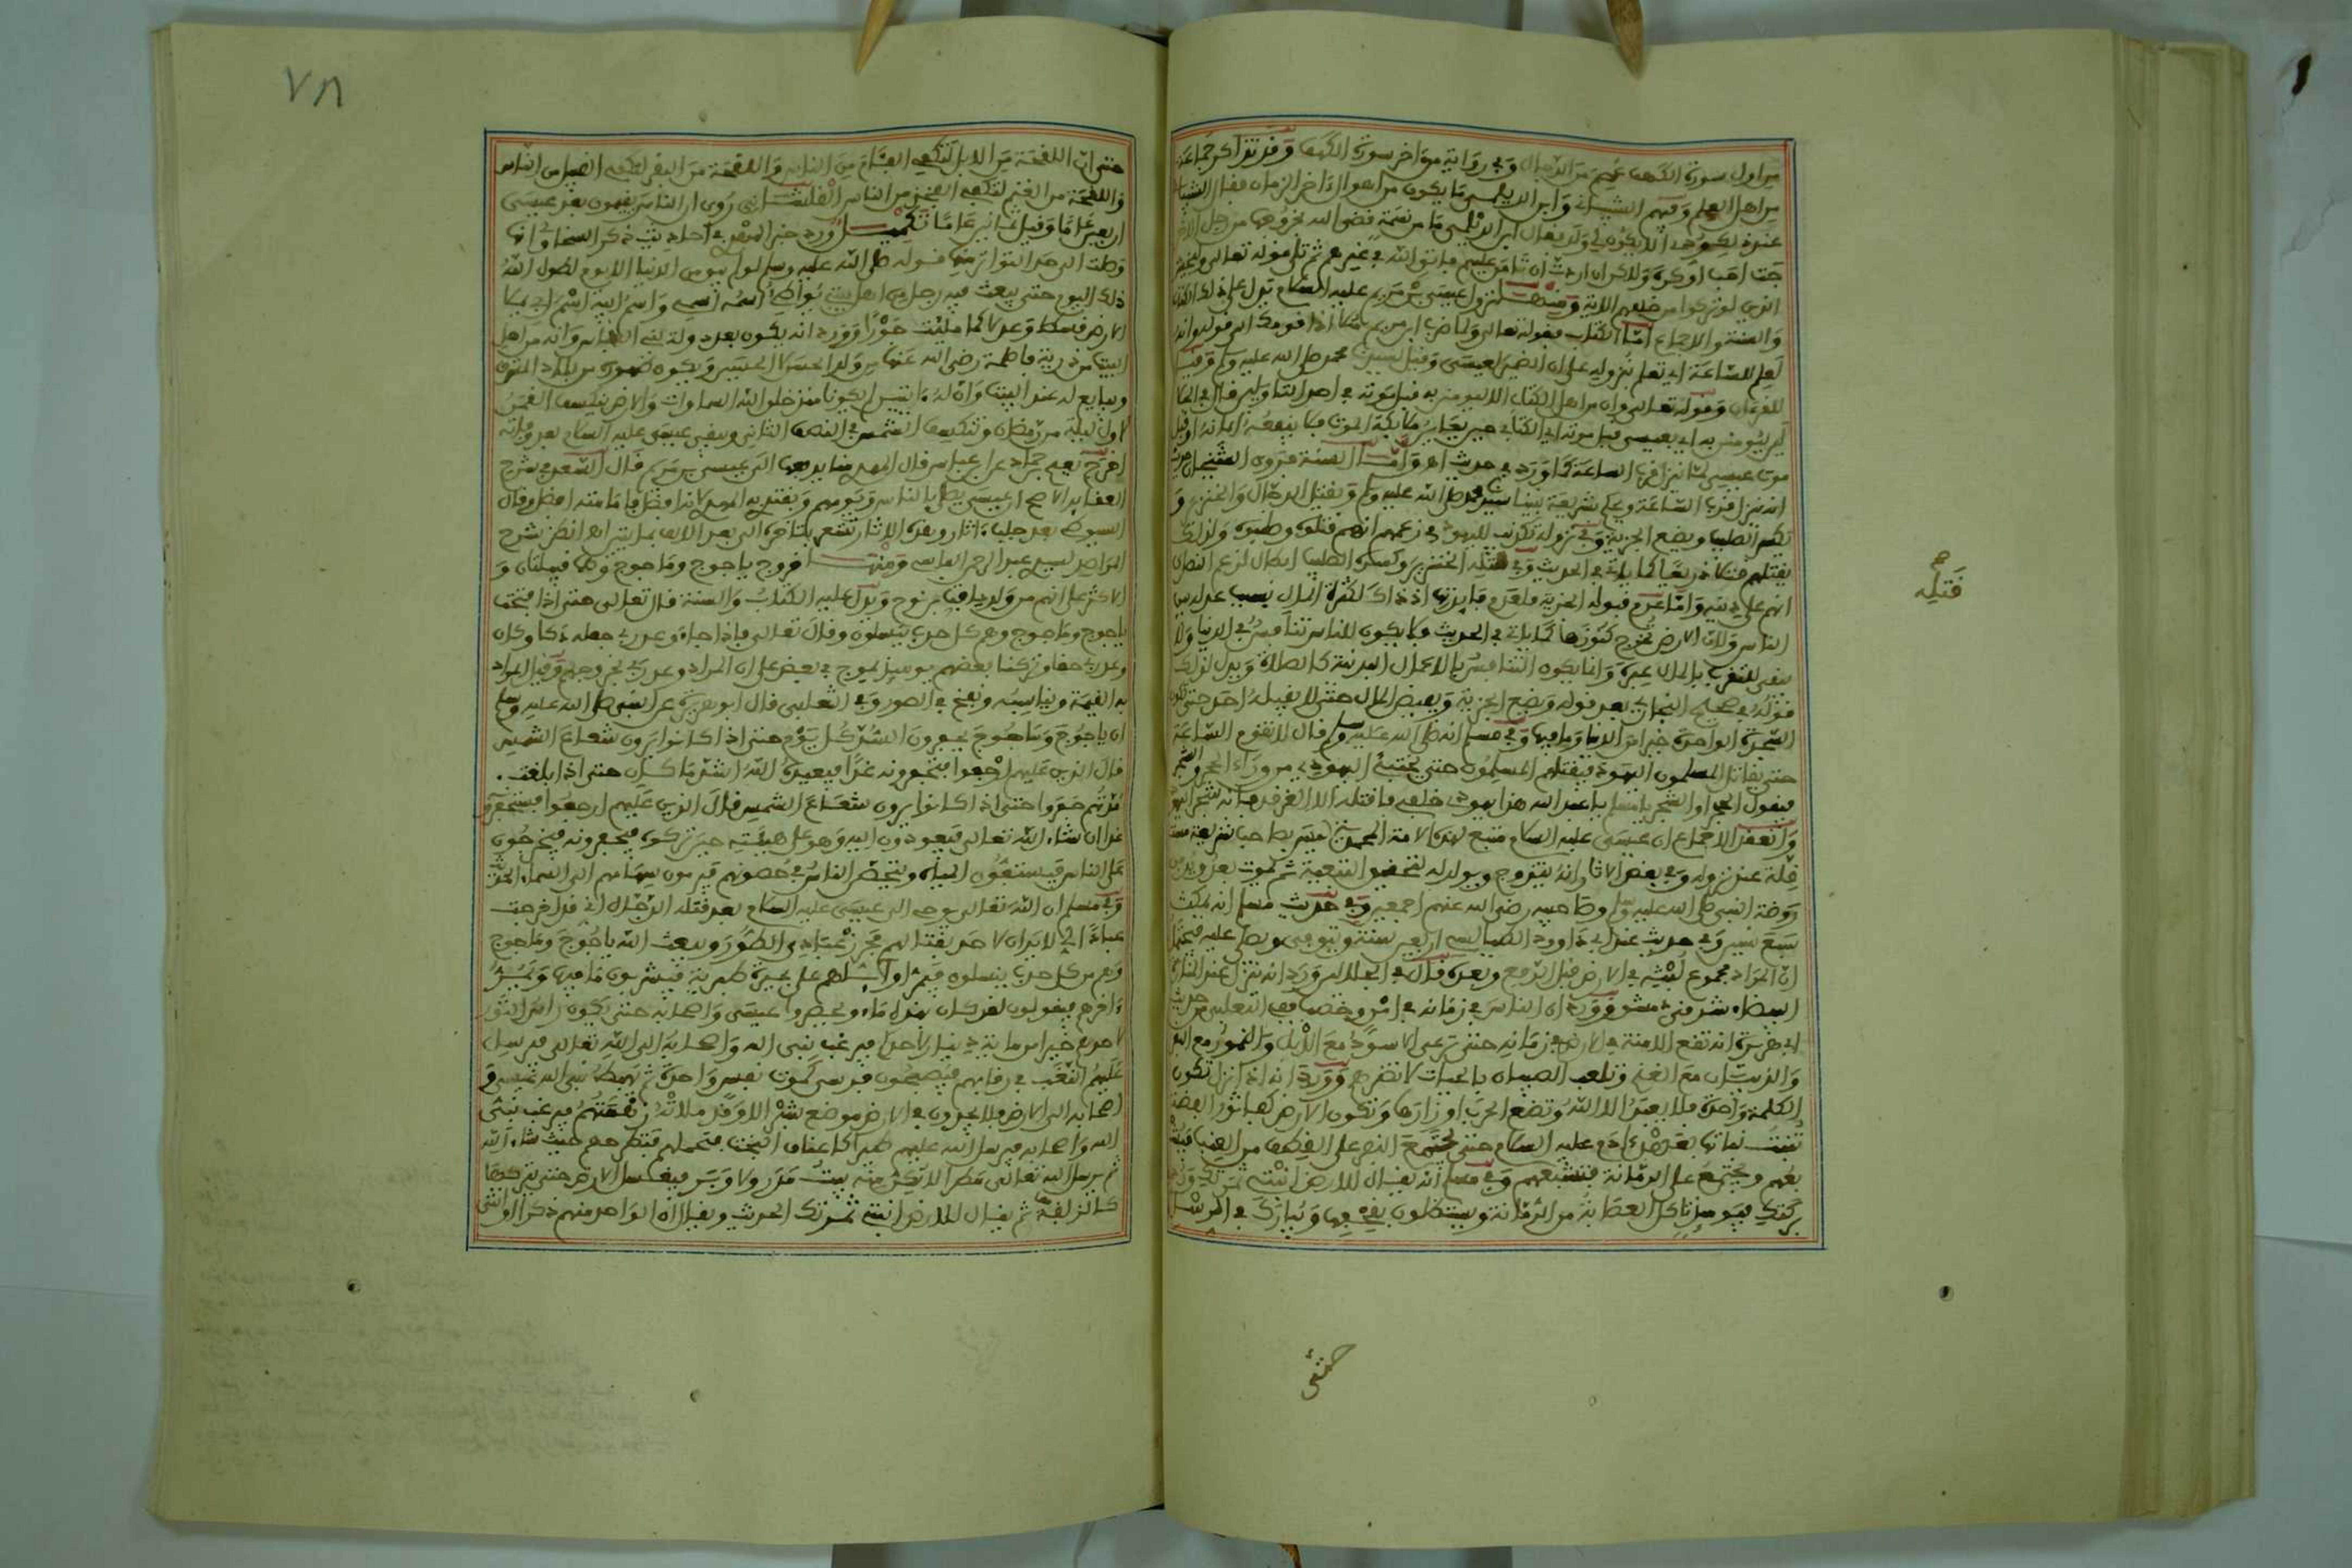 من اول سورة الكهف عصم من الدجال وفي رواية من اخر سورة الكهف وقد تذاكر جماعة
من اهل العلم وفيهم الشيباني وابن الديلمي ما يكون من اهوال اخر الزمان فقال الشيباني
الذين لو تركوا من خلفهم الاية ومنها نزول عيسى بن مريم عليه السلام تدل على ذلك الكتاب
والسنة والاجماع اما الكتاب فقوله تعالى ولما ضرب ابن مريم مثلا اذا قومك الى قوله وانه
لعلم للساعة اي تعلم بنزوله على ان الضمير لعيسى وقيل لسيدنا محمد صلى الله عليه وسلم وقيل
للقرءان وقوله تعالى وان من اهل الكتاب الا ليومنن به قبل موته في احد التاويلين قال في
ليومنن به اي بعيسى قبل موته اي الكتابي حين يعاين ملائكة الموت فلا ينفعه ايمانه او قبل
موت عيسى لما ينزل قرب الساعة كما ورد في حديث اهـ واما السنة فروى الشيخان حديث
انه ينزل قرب الساعة ويحكم بشريعة نبينا محمد صلى الله عليه وسلم ويقتل الدجال والخنزير و
يكسر الصليب ويضع الجزية وفي نزوله تكذيب لليهود في زعمهم انهم قتلوه وصلبوه ولذلك
يقتلهم قتلا ذريعا كما ياتي في الحديث وفي قتله الخنزير وكسره الصليب ابطال لزعم النصارى
انهم على دينه واما عدم قبوله الجزية فلعدم فايدتها اذ ذاك لكثرة المال بسبب عدله بين
الناس ولان الارض تخرج كنوزها كما ياتي في الحديث فلا يكون للناس تنافس في الدنيا ولا
يبقى للتقرب بالمال عبرة وانما يكون التنافس بالاعمال البدنية كالصلاة ويدل لذلك
قوله في صحيح البخاري بعد قوله ويضع الجزية ويفيض المال حتى لا يقبله احد حتى تكون
السجدة الواحدة خيرا من الدنيا وما فيها وفي مسلم انه صلى الله عليه وسلم قال لا تقوم الساعة
حتى يقاتل المسلمون اليهود فيقتلهم المسلمون حتى يختبئ اليهودي من وراء الحجر والشجر
فيقول الحجر او الشجر يا مسلم يا عبد الله هذا يهودي خلفي فاقتله الا الغرقد فانه شجر اليهود
وانعقد الاجماع ان عيسى عليه السلام متبع لهذه الامة المحمدية ليس بصاحب شريعة مستقلة
عند نزوله وفي بعض الاثار انه يتزوج ويولد له لتحقيق التبعية ثم يموت بعد ويدفن
روضة النبي صلى الله عليه وسلم وصاحبيه رضي الله عنهم اجمعين وفي حديث مسلم انه يمكث
سبع سنين وفي حديث عند ابي داوود الطيالسي اربعين سنة ويتوفى ويصلى عليه فيحتمل
ان المراد مجموع لبثه في الارض قبل الرفع وبعده قال في الجلالين وورد انه ينزل عند المنارة
البيضاء شرقي دمشق وورد ان الناس في زمانه في امن وخصب ففي الثعلبي من حديث
ابي هريرة انه تقع الامنة في الارض في زمانه حتى ترعى الاسود مع الابل والنمور مع البقر
والذيبان مع الغنم وتلعب الصبيان بالحيات لا تضرهم وورد انه اذا نزل تكون
الكلمة واحدة فلا يعبد الا الله وتضع الحرب اوزارها وتكون الارض كفاثور الفضة
تنبت نباتها بعهد ءادم عليه السلام حتى يجتمع النفر على القطف من العنب
يشبعهم ويجتمع على الرمانة فتشبعهم وفي مسلم انه يقال للارض انبتي ثمرتك وردي
بركتك فيومئذ تاكل العصابة من الرمانة ويستظلون بقحفها ويبارك في الرسل
قتله
حتى
٧٨
حتى ان اللقحة من الابل لتكفي الفئام من الناس واللقحة من البقر لتكفي القبيلة من الناس
واللقحة من الغنم لتكفي الفخذ من الناس روي ان الناس يبقون بعد عيسى
اربعين عاما وقيل ثمانين عاما تكميل ورد خبر المهدي في احاديث ذكر السخاوي انها
وصلت الى حد التواتر منها قوله صلى الله عليه وسلم لو لم يبق من الدنيا الا يوم لطول الله
ذلك اليوم حتى يبعث فيه رجل من اهل بيتي يواطئ اسمه اسمي واسم ابيه اسم ابي يملا
الارض قسطا وعدلا كما مليت جورا وورد انه يكون بعد دولة بني العباس وانه من اهل
البيت من ذرية فاطمة رضي الله عنها من ولد الحسن لا الحسين ويكون ظهوره من بلاد المشرق
ويبايع له عند البيت وان له ءايتين لم يكونا منذ خلق الله السماوات والارض ينكسف القمر
اول ليلة من رمضان وتنكسف الشمس في النصف الثاني ويبقى عيسى عليه السلام بعد وفاته
اخرج نعيم بن حماد عن ابن عباس قال المهدي منا يدفعها الى عيسى بن مريم قال السعد في شرح
العقايد الاصح ان عيسى يصلي بالناس ويومهم ويقتدي به المهدي لانه افضل فامامته افضل وقال
السيوطي بعد جلب ءاثار وهذه الاثار تشعر بتاخره الى بعد الالف بمايتين اهـ انظر شرح
المراصد لسيدي عبد الرحمن الفاسي ومنها خروج ياجوج وماجوج وهما قبيلتان و
الاكثر على انهم من ولد يافث بن نوح ويدل عليه الكتاب والسنة قال تعالى حتى اذا فتحت
ياجوج وماجوج وهم من كل حدب ينسلون وقال تعالى فاذا جاء وعد ربي جعله دكا وكان
وعد ربي حقا وتركنا بعضهم يوميذ يموج في بعض على ان المراد وعد ربي بخروجهم وقيل المراد
به القيمة ويناسبه ونفخ في الصور وفي الثعلبي قال ابو هريرة عن النبي صلى الله عليه وسلم
ان ياجوج وماجوج يحفرون السد كل يوم حتى اذا كانوا يرون شعاع الشمس
قال الذين عليهم ارجعوا فتحفرونه غدا فيعيده الله اشد ما كان حتى اذا بلغت
مدتهم حفروا حتى اذا كانوا يرون شعاع الشمس قال الذين عليهم ارجعوا فستحفرونه
غدا ان شاء الله تعالى فيعودون اليه وهو على هيئته حين تركوه فيحفرونه فيخرجون
على الناس فيستقون المياه ويتحصن الناس في حصونهم فيرمون سهامهم الى السماء الحديث
وفي مسلم ان الله تعالى يوحي الى عيسى عليه السلام بعد قتله الدجال اني قد اخرجت
عبادا لي لا يدان لاحد بقتالهم فحرز عبادي الى الطور ويبعث الله ياجوج وماجوج
وهم من كل حدب ينسلون فيمر اوايلهم على بحيرة طبرية فيشربون ما فيها ويمر
ءاخرهم فيقولون لقد كان بهذه ماء ويحصروا عيسى واصحابه حتى يكون راس الثور
لاحدهم خيرا من ماية دينار لاحدكم فيرغب نبي الله واصحابه الى الله تعالى فيرسل
عليهم النغف في رقابهم فيصبحون فرسى كموت نفس واحدة ثم يهبط نبي الله عيسى و
اصحابه الى الارض فلا يجدون في الارض موضع شبر الا وقد ملاته زهمتهم فيرغب نبي
الله واصحابه فيرسل الله عليهم طيرا كاعناق البخت فتحملهم فتطرحهم حيث شاء الله
ثم يرسل الله تعالى مطرا لا يكن منه بيت مدر ولا وبر فيغسل الارض حتى يتركها
كالزلفة ثم يقال للارض انبتي ثمرتك الحديث ويقال ان الواحد منهم ذكرا او انثى